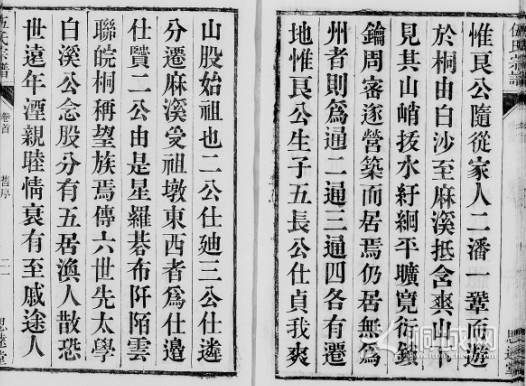 惟良公隨從家人二潘一鞏而遊
於桐由白沙至麻溪抵含爽山下
見其山峭拔水紆綱平曠寬衍鎖
鑰周密遂營築而居焉仍居無為
州者則為通二通三通四各有遷
地惟良公生子五長公仕貞我爽
山股始祖也二公仕廸三公仕遴
分遷麻溪受祖墩東西者為仕邉
仕賢二公由是星羅碁布阡陌雲
聯皖桐稱望族焉傳六世先太學
白溪公念股分有五居渙人散恐
世遠年湮親睦情衰有至戚途人
卷首
舊序
二